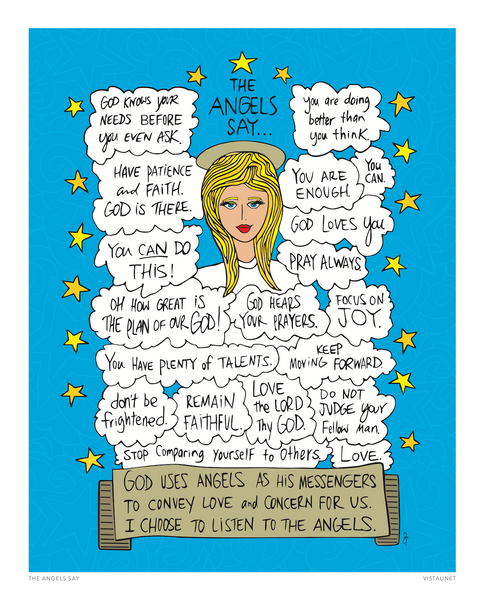 THE
ANGELS
SAY...
GOD KNOWS YOUR
NEEDS BEFORE
you EVEN ASK.
you are doing
better than
you think.
HAVE PATIENCE
and FAITH.
GOD IS THERE.
YOU ARE
ENOUGH.
You
CAN.
GOD LOVES you
YOU CAN DO
THIS!
PRAY ALWAYS.
OH HOW GREAT IS
THE PLAN OF OUR GOD!
GOD HEARS
YOUR PRAYERS.
FOCUS ON
JOY.
YOU HAVE PLENTY of TALENTS.
KEEP
MOVING FORWARD.
don't be
frightened.
REMAIN
FAITHFUL.
LOVE
the LORD
Thy GOD.
DO NOT
JUDGE your
Fellow man.
STOP Comparing Yourself to Others.
LOVE.
GOD USES ANGELS AS HIS MESSENGERS
TO CONVEY LOVE and CONCERN FOR US.
I CHOOSE TO LISTEN TO THE ANGELS.
THE ANGELS SAY
VISTAUNET